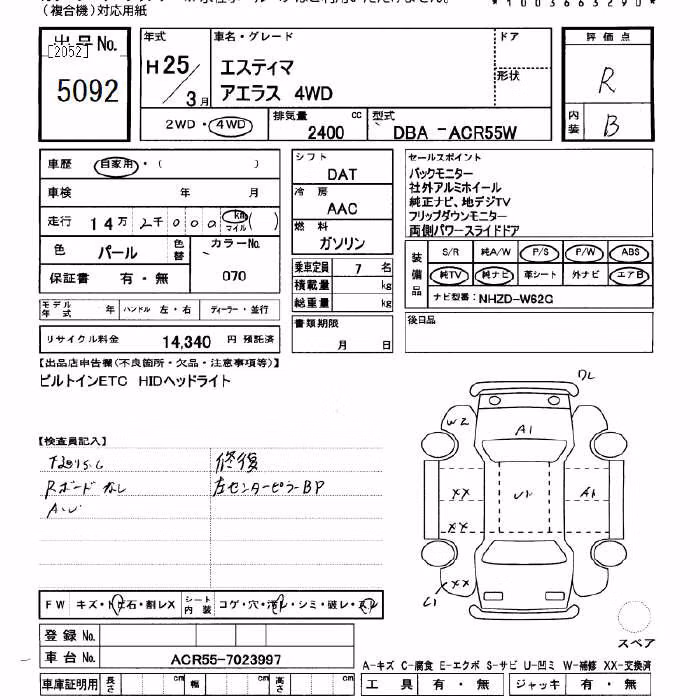 (複合機)対応用紙
*1003663290*
出品No.
[2052]
5092
年式
H25/3月
車名・グレード
エスティマ
アエラス 4WD
ドア
形状
評価点
R
内装
B
2WD・4WD
排気量 cc
2400
型式
DBA -ACR55W
車歴 自家用・( )
車検 年 月
走行 14万2千000 km マイル ( )
色 パール 色替 カラーNo.
保証書 有・無 070
モデル年式 年 ハンドル 左・右 ディーラー・並行
リサイクル料金 14,340 円 預託済
シフト
DAT
冷房
AAC
燃料
ガソリン
乗車定員 7 名
積載量 kg
総重量 kg
書類期限
月 日
セールスポイント
バックモニター
社外アルミホイール
純正ナビ、地デジTV
フリップダウンモニター
両側パワースライドドア
装備品
S/R 純A/W P/S P/W ABS
純TV 純ナビ 革シート 外ナビ エアB
ナビ型番: NHZD-W62G
後日品
【出品店申告欄(不良箇所・欠品・注意事項等)】
ビルトインETC HIDヘッドライト
【検査員記入】
修復
Rボード なし
左センターピラーBP
ワレ
W2
A1
XX
U1
A1
XX
XX
FW キズ・トビ石・割レX シート内装 コゲ・穴・汚レ・シミ・破レ・スレ
登録No.
車台No. ACR55-7023997
車庫証明用 長さ cm 幅 cm 高さ cm
スペア
A-キズ C-腐食 E-エクボ S-サビ U-凹ミ W-補修 XX-交換済
工具 有・無 ジャッキ 有・無